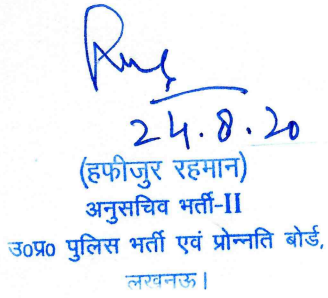 24.8.20
(हफीजुर रहमान)
अनुसचिव भर्ती-II
उ0प्र0 पुलिस भर्ती एवं प्रोन्नति बोर्ड,
लखनऊ।